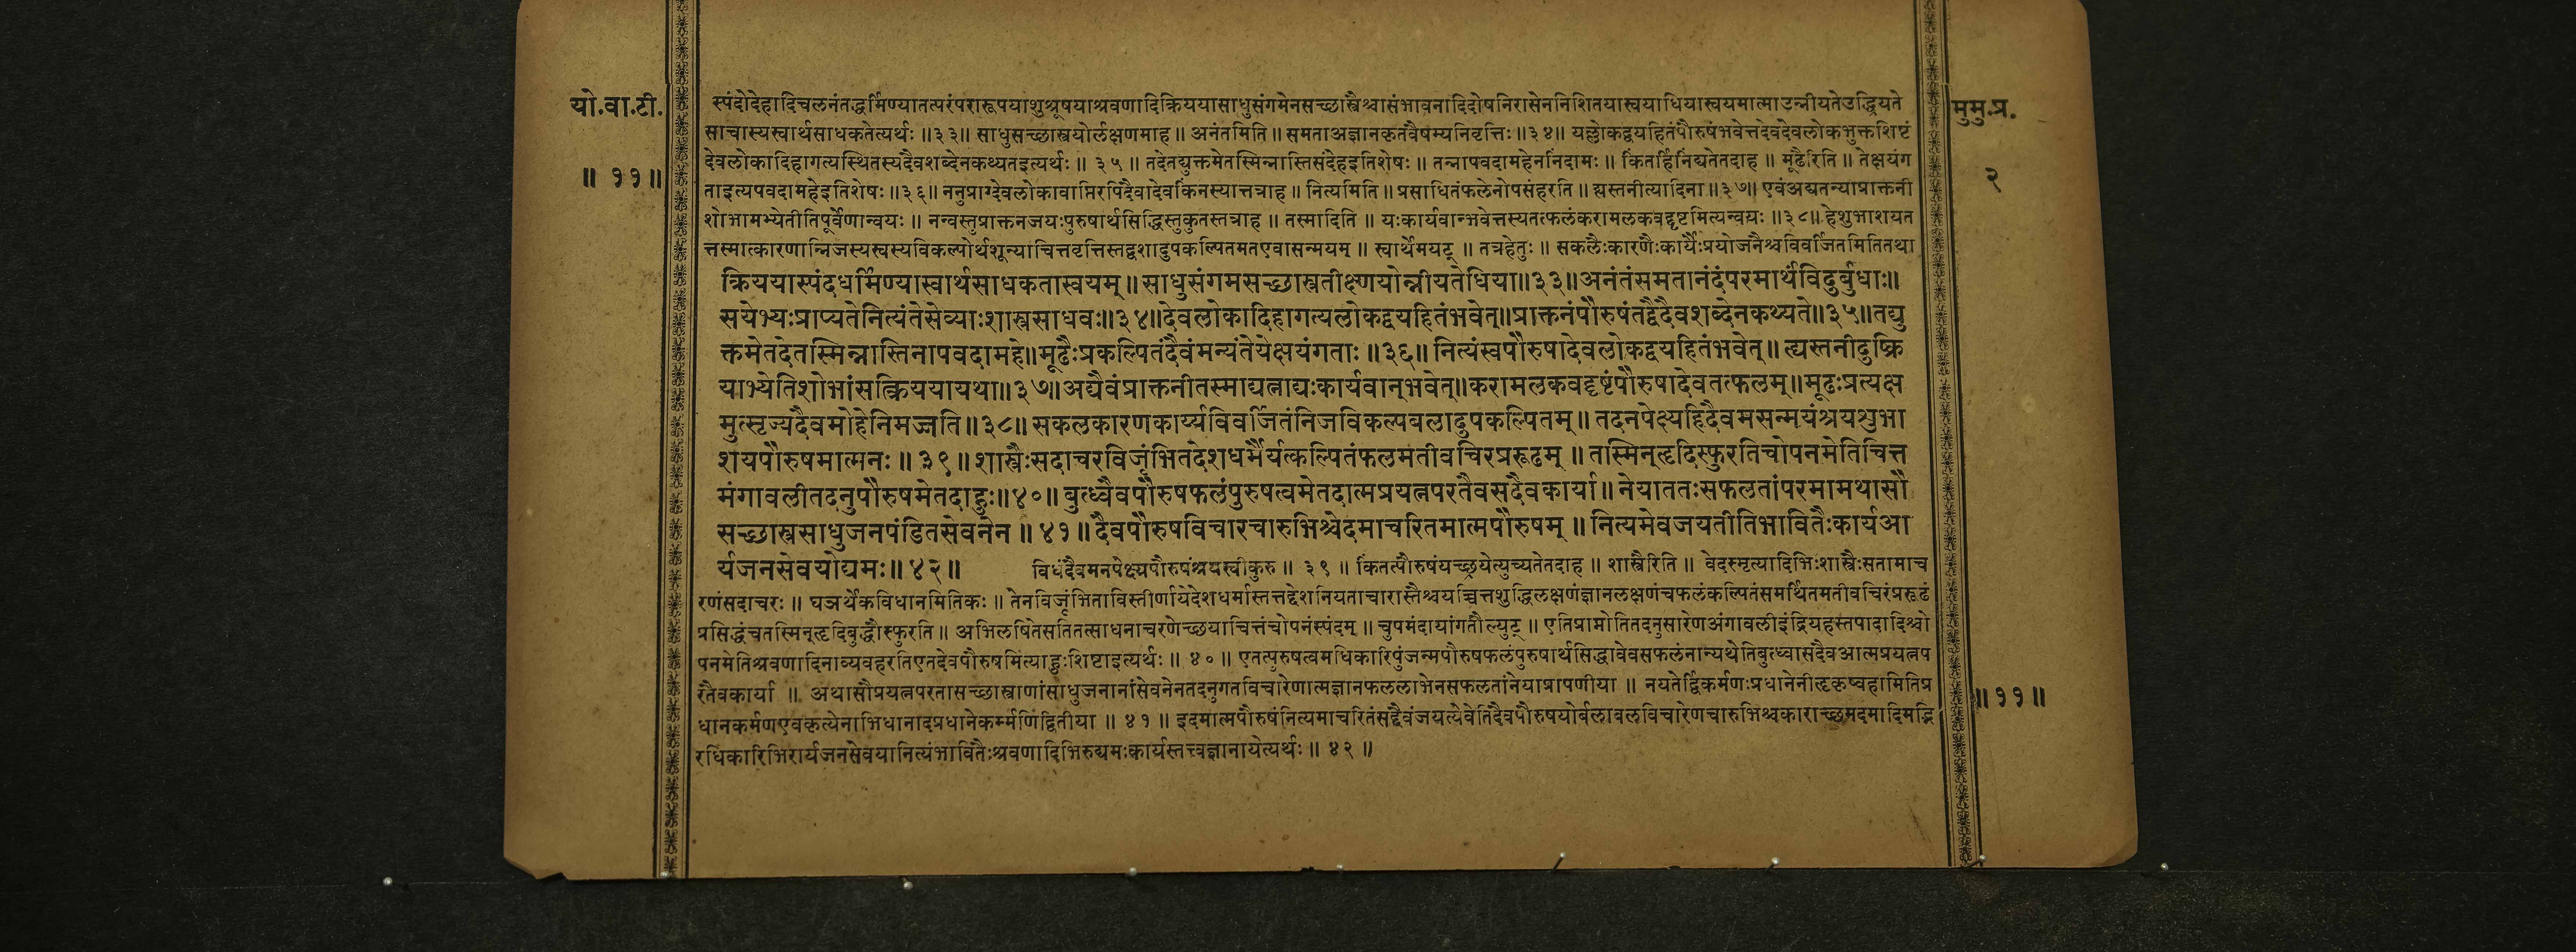 यो.वा.टी.
॥ ११॥
स्पंदोदेहादिचलनंतद्धर्मिण्यातत्परंपरारूपयाशुश्रूषयाश्रवणादिक्रिययासाधुसंगमेनसच्छास्त्रैश्चासंभावनादिदोषनिरासेननिशितयास्वयाधियास्वयमात्माउन्नीयतेउद्ध्रियते
साचास्यस्वार्थसाधकतेत्यर्थः ॥३३॥ साधुसच्छास्त्रयोर्लक्षणमाह ॥ अनंतमिति ॥ समताअज्ञानकृतवैषम्यनिवृत्तिः ॥३४॥ यल्लोकद्वयहितंपौरुषंभवेत्तदेवदेवलोकभुक्तशिष्टं
देवलोकादिहागत्यस्थितस्यदैवशब्देनकथ्यतइत्यर्थः ॥ ३५ ॥ तदेतद्युक्तमेतस्मिन्नास्तिसंदेहइतिशेषः ॥ तन्नापवदामहेननिंदामः ॥ किंतर्हिनिंद्यतेतदाह ॥ मूढैरिति ॥ तेक्षयंग
ताइत्यपवदामहेइतिशेषः ॥३६॥ ननुप्राग्देवलोकावाप्तिरपिदैवादेवकिंनस्यात्तत्राह ॥ नित्यमिति ॥ प्रसाधितंफलेनोपसंहरति ॥ ह्यस्तनीत्यादिना ॥३७॥ एवंअद्यतन्याप्राक्तनी
शोभामभ्येतीतिपूर्वेणान्वयः ॥ नन्वस्तुप्राक्तनजयःपुरुषार्थसिद्धिस्तुकुतस्तत्राह ॥ तस्मादिति ॥ यःकार्यवान्भवेत्तस्यतत्फलंकरामलकवद्दृष्टमित्यन्वयः ॥३८॥ हेशुभाशयत
त्तस्मात्कारणान्निजस्यस्वस्यविकल्पोर्थशून्याचित्तवृत्तिस्तद्वशादुपकल्पितमतएवासन्मयम् ॥ स्वार्थेमयट् ॥ तत्रहेतुः ॥ सकलैःकारणैःकार्यैःप्रयोजनैश्चविवर्जितमितितथा
क्रिययास्पंदधर्मिण्यास्वार्थसाधकतास्वयम् ॥ साधुसंगमसच्छास्त्रतीक्ष्णयोन्नीयतेधिया॥३३॥अनंतंसमतानंदंपरमार्थंविदुर्बुधाः॥
सयेभ्यःप्राप्यतेनित्यंतेसेव्याःशास्त्रसाधवः॥३४॥देवलोकादिहागत्यलोकद्वयहितंभवेत्॥प्राक्तनंपौरुषंतद्वैदैवशब्देनकथ्यते॥३५॥तद्यु
क्तमेतदेतस्मिन्नास्तिनापवदामहे॥मूढैःप्रकल्पितंदैवंमन्यंतेयेक्षयंगताः ॥३६॥ नित्यंस्वपौरुषादेवलोकद्वयहितंभवेत् ॥ ह्यस्तनीदुष्क्रि
याभ्येतिशोभांसत्क्रिययायथा॥३७॥अद्यैवंप्राक्तनीतस्माद्यत्नाद्यःकार्यवान्भवेत्॥करामलकवद्दृष्टंपौरुषादेवतत्फलम्॥मूढःप्रत्यक्ष
मुत्सृज्यदैवमोहेनिमज्जति॥३८॥ सकलकारणकार्य्यविवर्जितंनिजविकल्पबलादुपकल्पितम् ॥ तदनपेक्ष्यहिदैवमसन्मयंश्रयशुभा
शयपौरुषमात्मनः ॥ ३९ ॥ शास्त्रैःसदाचरविजृंभितदेशधर्मैर्यत्कल्पितंफलमतीवचिरप्ररूढम् ॥ तस्मिन्हृदिस्फुरतिचोपनमेतिचित्त
मंगावलीतदनुपौरुषमेतदाहुः॥४०॥ बुद्ध्वैवपौरुषफलंपुरुषत्वमेतदात्मप्रयत्नपरतैवसदैवकार्या॥ नेयाततःसफलतांपरमामथासौ
सच्छास्त्रसाधुजनपंडितसेवनेन ॥ ४१ ॥ दैवपौरुषविचारचारुभिश्चेदमाचरितमात्मपौरुषम् ॥ नित्यमेवजयतीतिभावितैःकार्यआ
र्यजनसेवयोद्यमः॥ ४२॥
विधंदैवमनपेक्ष्यपौरुषंश्रयस्वीकुरु ॥ ३९ ॥ किंतत्पौरुषंयच्छ्रयेत्युच्यतेतदाह ॥ शास्त्रैरिति ॥ वेदस्मृत्यादिभिःशास्त्रैःसतामाच
रणंसदाचरः ॥ घञर्थेकविधानमितिकः ॥ तेनविजृंभिताविस्तीर्णायेदेशधर्मास्तत्तद्देशनियताचारास्तैश्चयच्चित्तशुद्धिलक्षणंज्ञानलक्षणंचफलंकल्पितंसमर्थितमतीवचिरंप्ररूढं
प्रसिद्धंचतस्मिन्हृदिबुद्धौस्फुरति ॥ अभिलषितेसतितत्साधनाचरणेच्छयाचित्तंचोपनंस्पंदम् ॥ चुपमंदायांगतौल्युट् ॥ एतिप्राप्नोतितदनुसारेणअंगावलीइंद्रियहस्तपादादिश्चो
पनमेतिश्रवणादिनाव्यवहरतिएतदेवपौरुषमित्याहुःशिष्टाइत्यर्थः ॥ ४० ॥ एतत्पुरुषत्वमधिकारिपुंजन्मपौरुषफलंपुरुषार्थसिद्धावेवसफलंनान्यथेतिबुद्ध्वासदैवआत्मप्रयत्नप
रतैवकार्या ॥ अथासौप्रयत्नपरतासच्छास्त्राणांसाधुजनानांसेवनेनतदनुगतविचारेणात्मज्ञानफललाभेनसफलतांनेयाप्रापणीया ॥ नयतेर्द्विकर्मणःप्रधानेनीहृकृष्वहामितिप्र
धानकर्मणएवकृत्येनाभिधानादप्रधानेकर्म्मणिद्वितीया ॥ ४१ ॥ इदमात्मपौरुषंनित्यमाचरितंसद्दैवंजयत्येवेतिदैवपौरुषयोर्बलाबलविचारेणचारुभिश्चकाराच्छमदमादिमद्भि
रधिकारिभिरार्यजनसेवयानित्यंभावितैःश्रवणादिभिरुद्यमःकार्यस्तत्त्वज्ञानायेत्यर्थः ॥ ४२ ॥
मुमु.प्र.
२
॥११॥